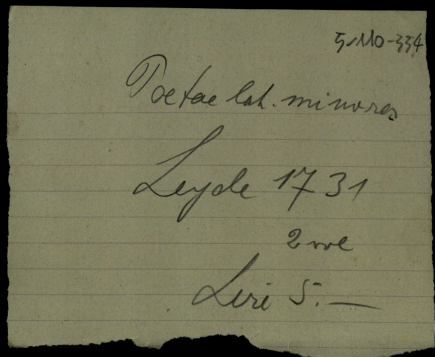 5-110-334
Poetae lat. minores
Leyde 1731
2 vol
Leri 5.—